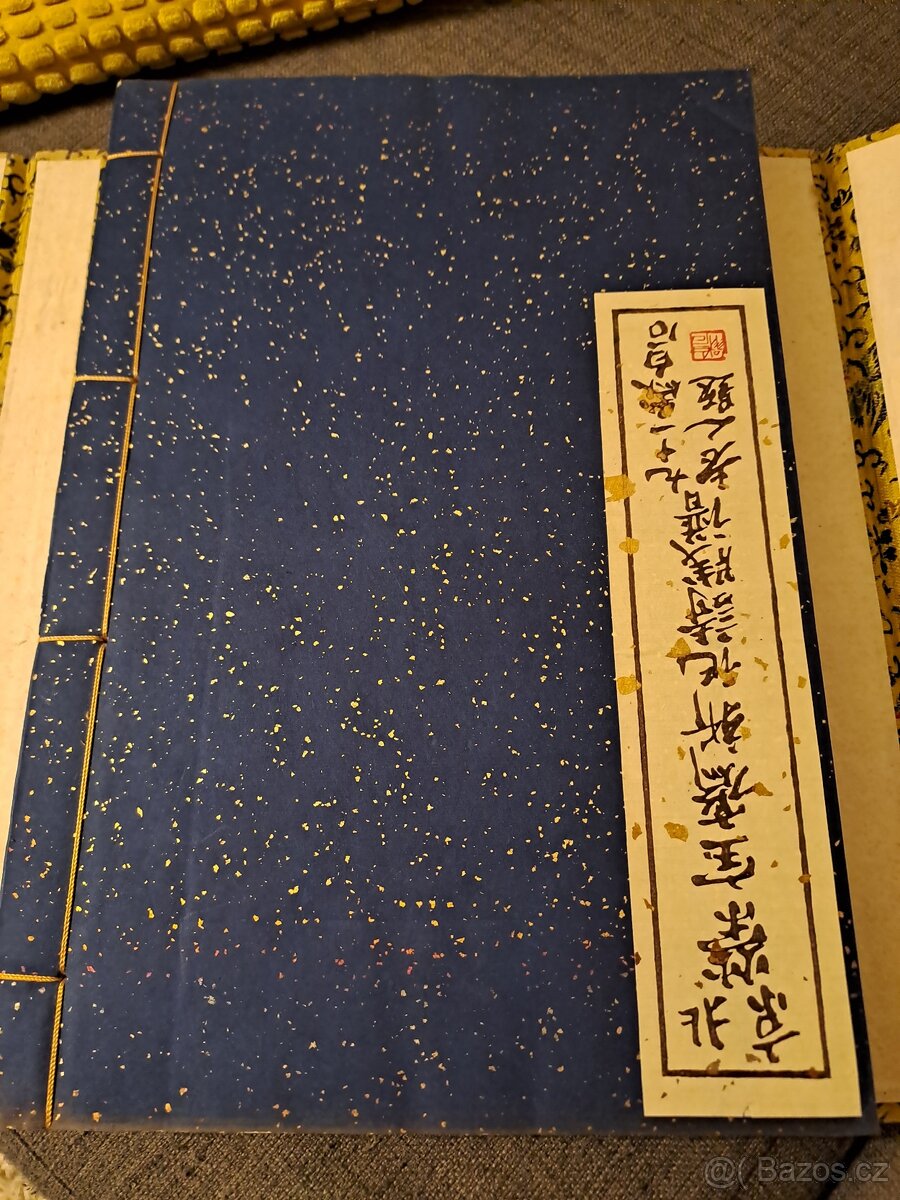 北京榮寶齋新記詩箋譜
九十一歲白石
老人題
@( Bazos.cz